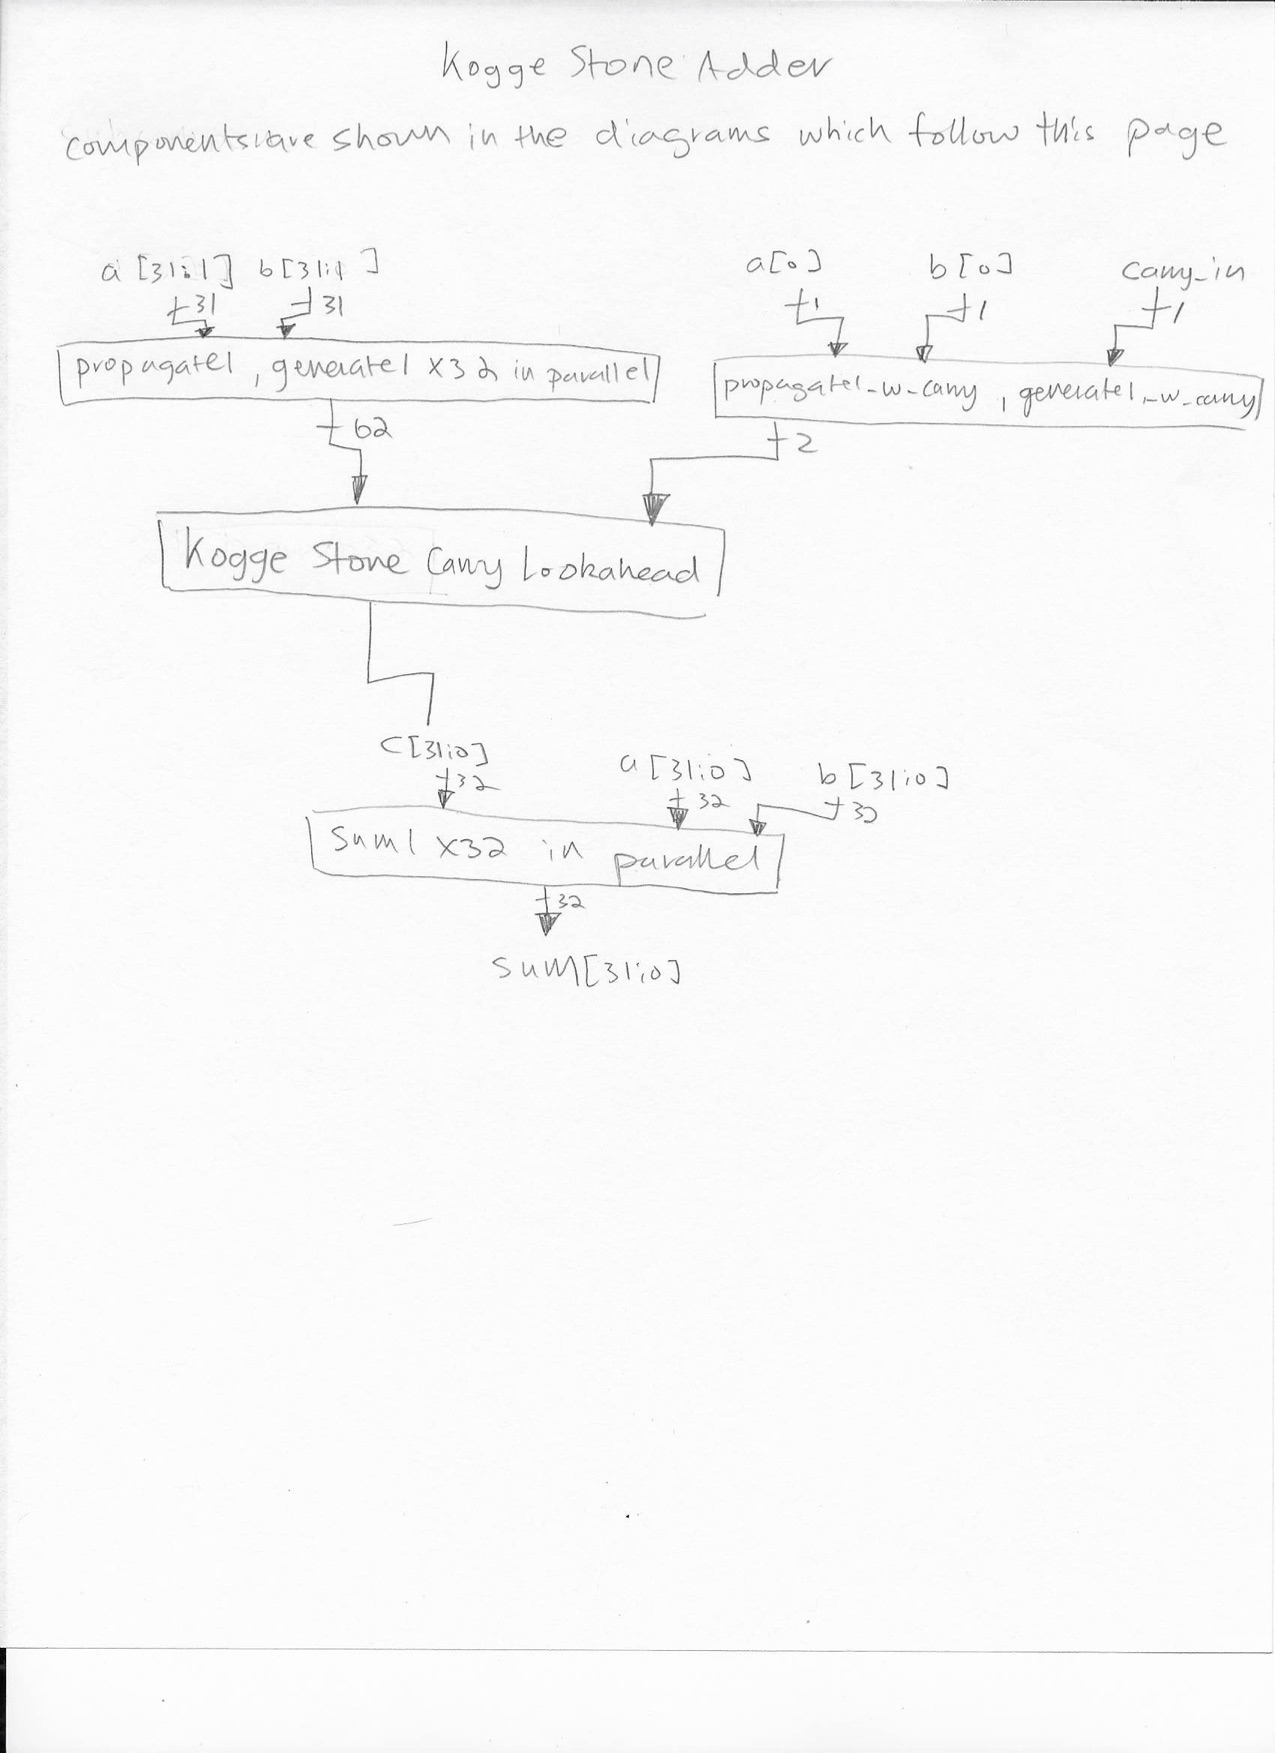 Kogge Stone Adder
components are shown in the diagrams which follow this page
a[31:1] b[31:1]
31 31
a[0] b[0] carry_in
1 1 1
propagate1, generate1 x32 in parallel
propagate1_w_carry, generate1_w_carry
62
2
Kogge Stone Carry Lookahead
c[31:0] a[31:0] b[31:0]
32 32 32
sum1 x32 in parallel
32
sum[31:0]